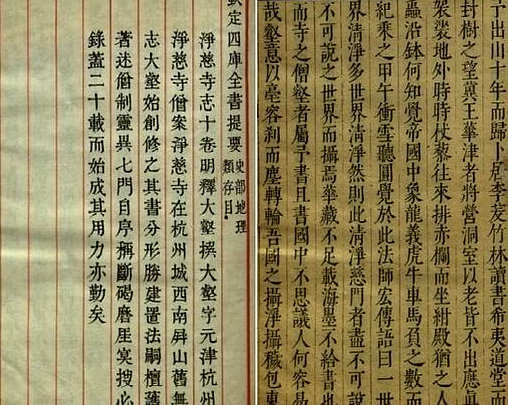 于出山十年而歸卜居李芰竹林讀書希夷道堂而
封樹之望奠王華津者將營洞室以老皆不出應真
袈裟地外時時杖藜往來排赤欄而坐紺殿猶之人
蟲沿鉢何知覺帝國中象龍義虎牛車馬負之數而
紀乘之甲午衝雪聽圓覺於此法師宏傳語曰一世
界清淨多世界清淨然則此清淨慈門者盡不可說
不可說之世界而攝焉華藏不足載海墨不給書也
而寺之僧壑者屬予書且書國中不思議人何容易
哉壑意以毫容刹而塵轉輪吾國之攝淨攝穢包
欽定四庫全書提要 史部地理類存目
淨慈寺志十卷明釋大壑撰大壑字元津杭州
淨慈寺僧案淨慈寺在杭州城西南屏山舊無
志大壑始創修之其書分形勝建置法嗣檀護
著述僧制靈異七門自序稱斷碣磨崖冥搜必
錄蓋二十載而始成其用力亦勤矣